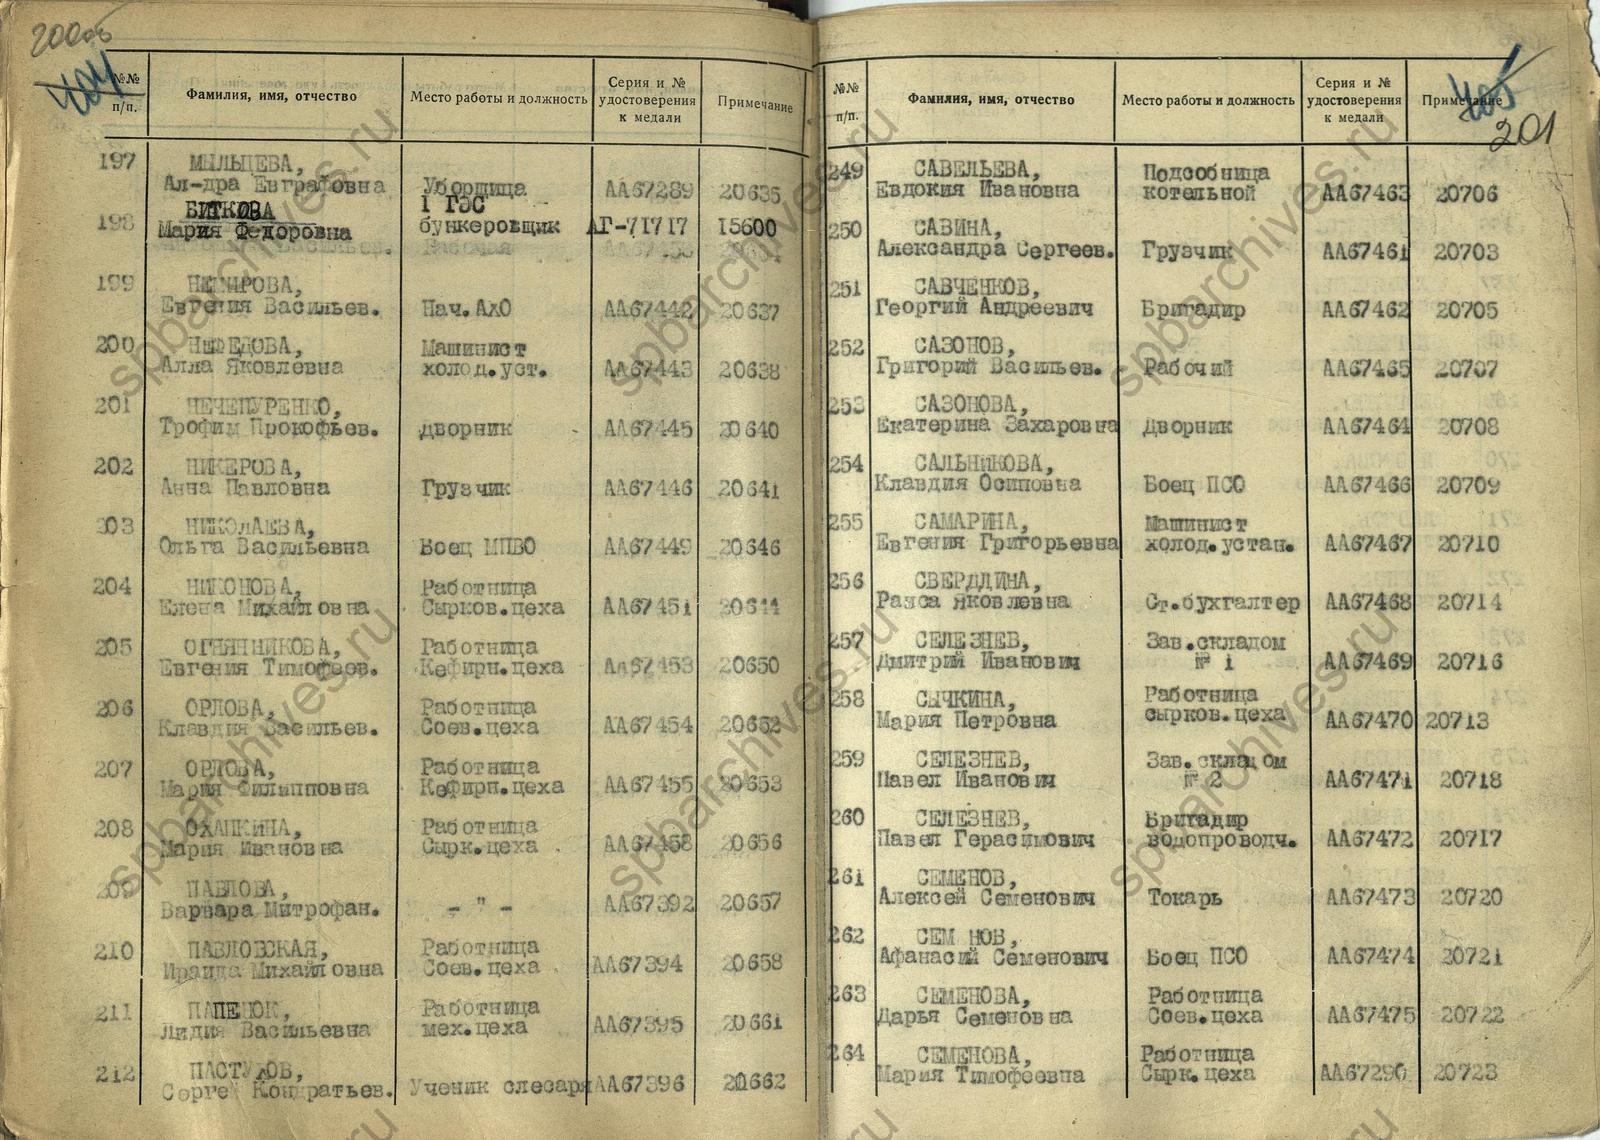 200об
404
№№ п/п. Фамилия, имя, отчество Место работы и должность Серия и № удостоверения к медали Примечание
197 МЫЛЬЦЕВА,
Ал-дра Евграфовна Уборщица АА67289 20635
БИТКОВА 1 ГЭС
198 Мария Федоровна бункеровщик АГ-71717 15600
199 НЕМИРОВА,
Евгения Васильев. Нач.АХО АА67442 20637
200 НЕФЕДОВА, Машинист
Алла Яковлевна холод.уст. АА67443 20638
201 НЕЧЕПУРЕНКО,
Трофим Прокофьев. дворник АА67445 20640
202 НИКЕРОВА,
Анна Павловна Грузчик АА67446 20641
203 НИКОЛАЕВА,
Ольга Васильевна Боец МПВО АА67449 20646
204 НИКОНОВА, Работница
Елена Михайловна Сырков.цеха АА67451 20644
205 ОГНЯННИКОВА, Работница
Евгения Тимофеев. Кефирн.цеха АА67453 20650
206 ОРЛОВА, Работница
Клавдия Васильев. Соев.цеха АА67454 20652
207 ОРЛОВА, Работница
Мария Филипповна Кефирн.цеха АА67455 20653
208 ОХАПКИНА, Работница
Мария Ивановна Сырк.цеха АА67458 20656
209 ПАВЛОВА,
Варвара Митрофан. - " - АА67392 20657
210 ПАВЛОВСКАЯ, Работница
Ираида Михайловна Соев.цеха АА67394 20658
211 ПАПЕНОК, Работница
Лидия Васильевна мех.цеха АА67395 20661
212 ПАСТУХОВ,
Сергей Кондратьев. Ученик слесаря АА67396 20662
405
201
№№ п/п. Фамилия, имя, отчество Место работы и должность Серия и № удостоверения к медали Примечание
249 САВЕЛЬЕВА, Подсобница
Евдокия Ивановна котельной АА67463 20706
250 САВИНА,
Александра Сергеев. Грузчик АА67461 20703
251 САВЧЕНКОВ,
Георгий Андреевич Бригадир АА67462 20705
252 САЗОНОВ,
Григорий Васильев. Рабочий АА67465 20707
253 САЗОНОВА,
Екатерина Захаровна Дворник АА67464 20708
254 САЛЬНИКОВА,
Клавдия Осиповна Боец ПСО АА67466 20709
255 САМАРИНА, Машинист
Евгения Григорьевна холод.устан. АА67467 20710
256 СВЕРДЛИНА,
Раиса Яковлевна Ст.бухгалтер АА67468 20714
257 СЕЛЕЗНЕВ, Зав.складом
Дмитрий Иванович № 1 АА67469 20716
258 СЫЧКИНА, Работница
Мария Петровна сырков.цеха АА67470 20713
259 СЕЛЕЗНЕВ, Зав.складом
Павел Иванович № 2 АА67471 20718
260 СЕЛЕЗНЕВ, Бригадир
Павел Герасимович водопроводч. АА67472 20717
261 СЕМЕНОВ,
Алексей Семенович Токарь АА67473 20720
262 СЕМ НОВ,
Афанасий Семенович Боец ПСО АА67474 20721
263 СЕМЕНОВА, Работница
Дарья Семеновна Соев.цеха АА67475 20722
264 СЕМЕНОВА, Работница
Мария Тимофеевна Сырк.цеха АА67290 20723
spbarchives.ru